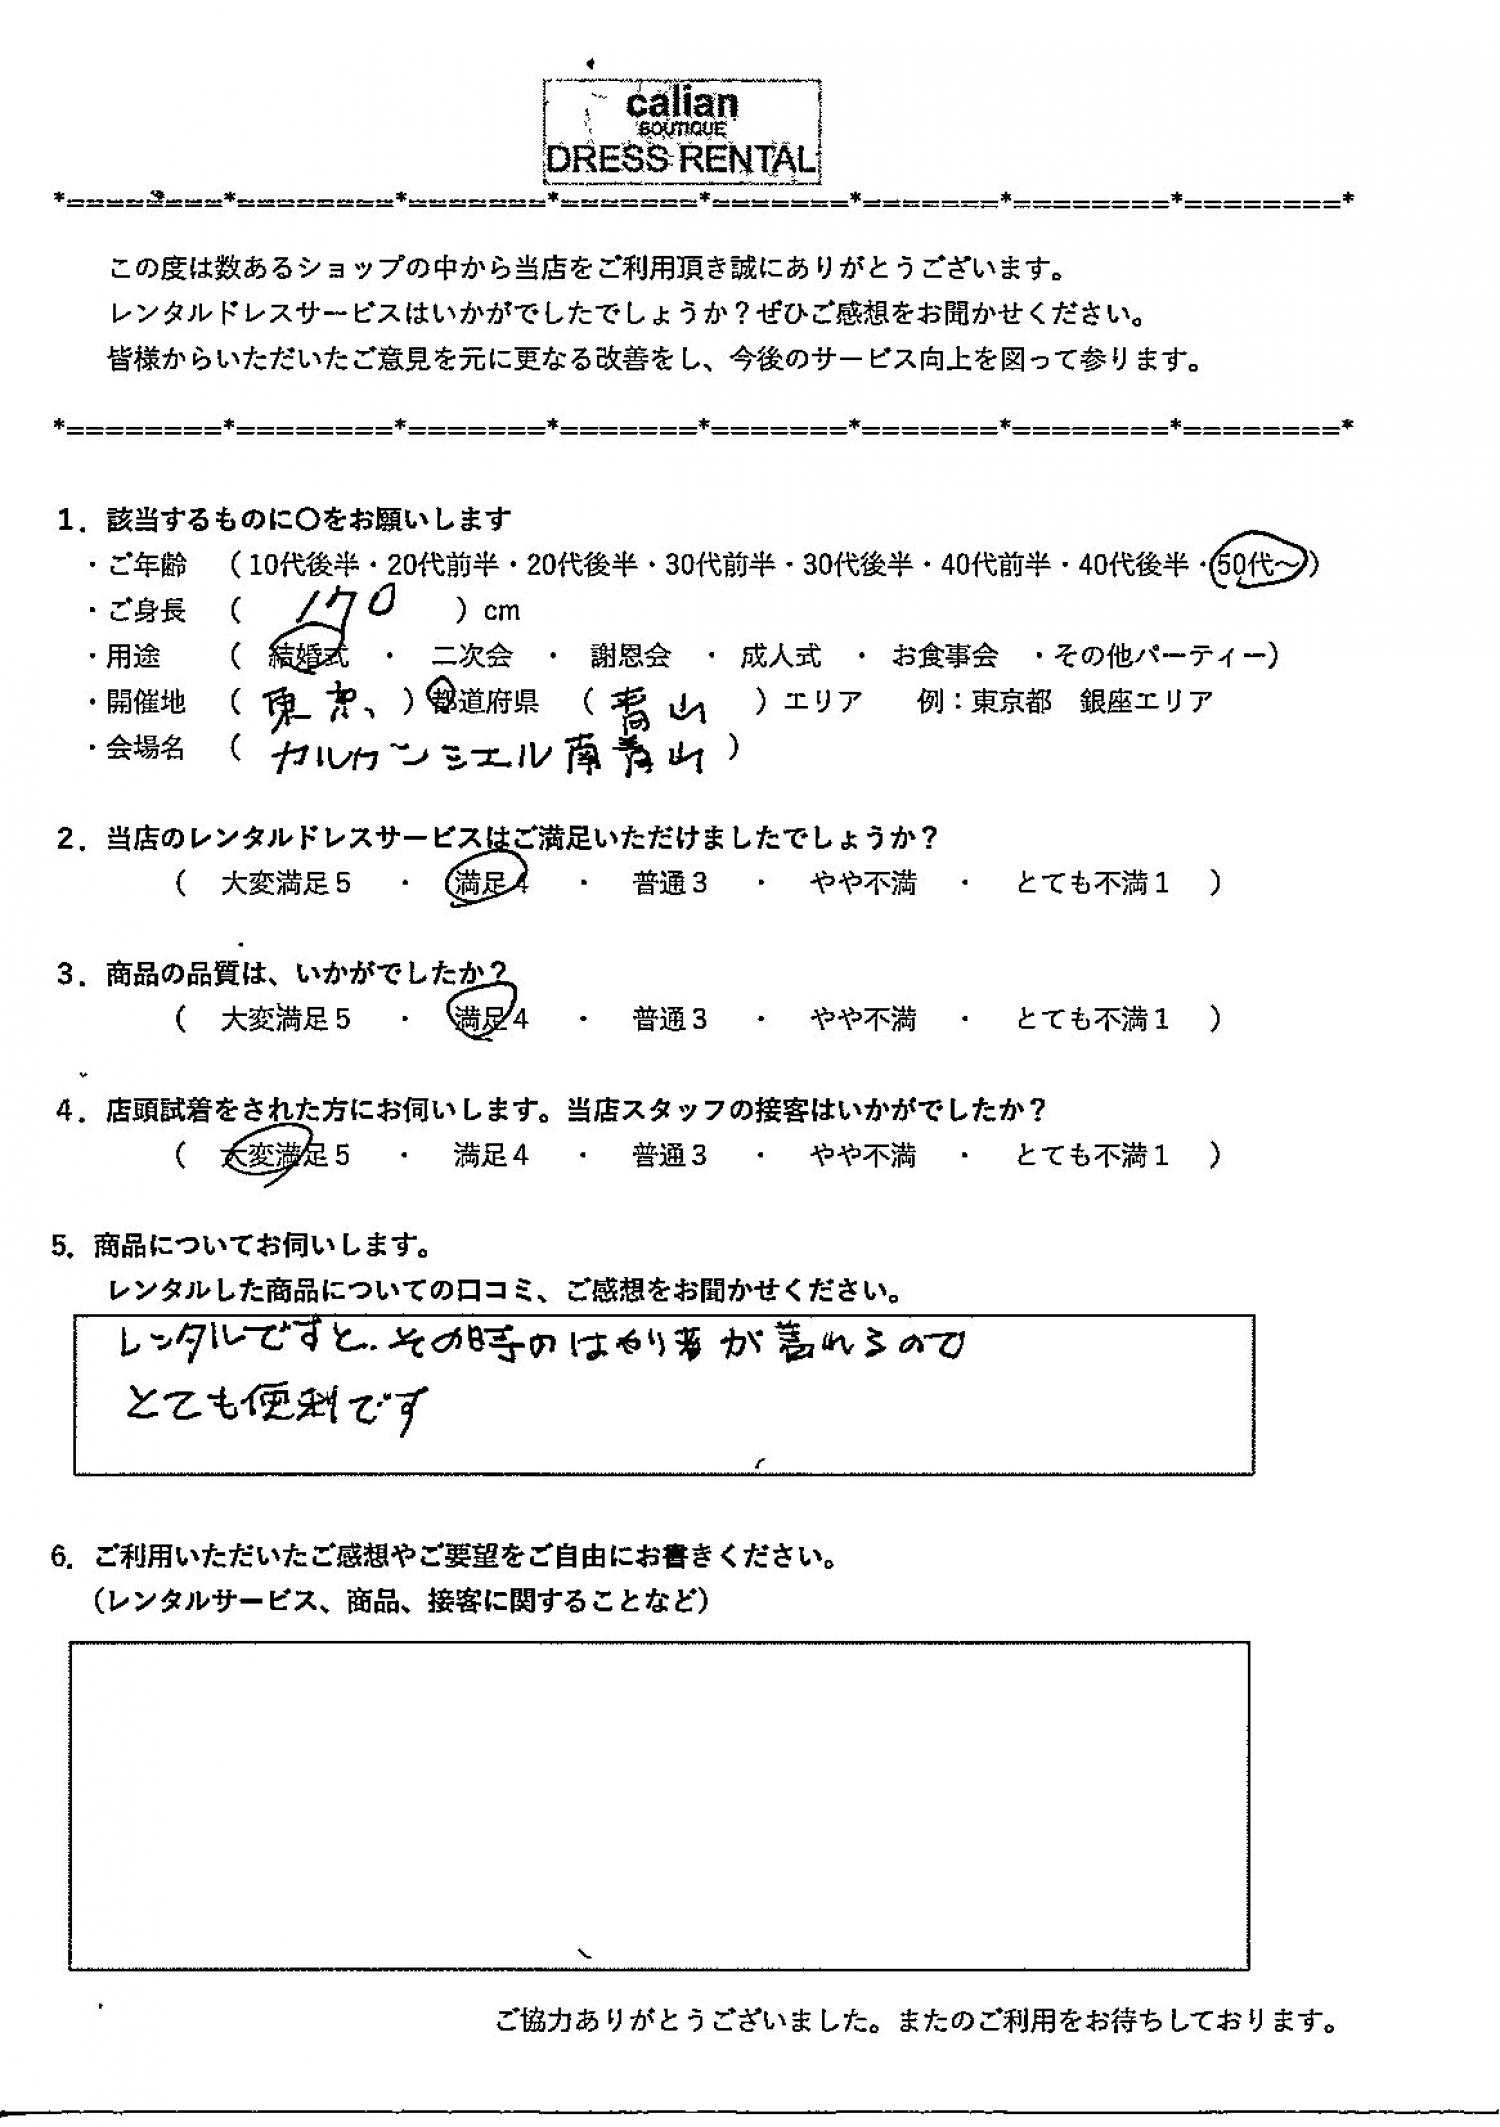 calian
BOUTIQUE
DRESS RENTAL
*========*========*=======*=======*=======*=======*========*========*
この度は数あるショップの中から当店をご利用頂き誠にありがとうございます。
レンタルドレスサービスはいかがでしたでしょうか？ぜひご感想をお聞かせください。
皆様からいただいたご意見を元に更なる改善をし、今後のサービス向上を図って参ります。
*========*========*=======*=======*=======*=======*========*========*
1．該当するものに〇をお願いします
・ご年齢　（10代後半・20代前半・20代後半・30代前半・30代後半・40代前半・40代後半・50代～）
・ご身長　（　170　）cm
・用途　（　結婚式　・　二次会　・　謝恩会　・ 成人式　・　お食事会　・その他パーティー）
・開催地　（ 東京、）都道府県　（ 青山　）エリア　　例：東京都　銀座エリア
・会場名　（　カルガーンシエル南青山 ）
2．当店のレンタルドレスサービスはご満足いただけましたでしょうか？
（　大変満足５　・　満足４　・　普通３　・　やや不満　・　とても不満１　）
3．商品の品質は、いかがでしたか？
（　大変満足５　・　満足４　・　普通３　・　やや不満　・　とても不満１　）
4．店頭試着をされた方にお伺いします。当店スタッフの接客はいかがでしたか？
（　大変満足５　・　満足４　・　普通３　・　やや不満　・　とても不満１　）
5．商品についてお伺いします。
レンタルした商品についての口コミ、ご感想をお聞かせください。
レンタルですと、その時のはやり着が着れるので
とても便利です
6．ご利用いただいたご感想やご要望をご自由にお書きください。
（レンタルサービス、商品、接客に関することなど）
ご協力ありがとうございました。またのご利用をお待ちしております。